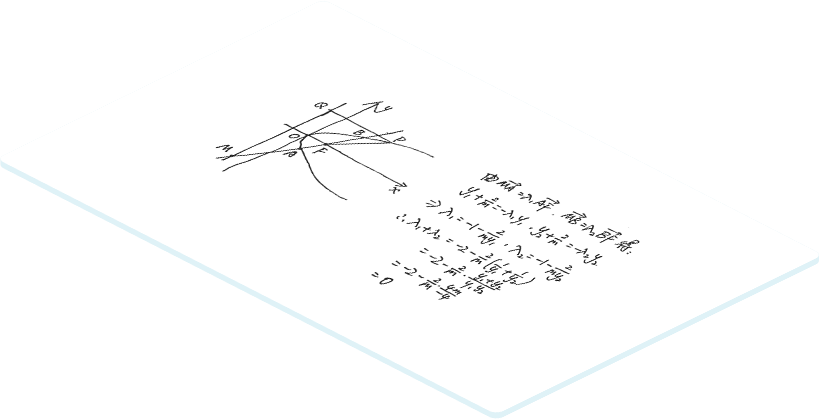 Q
y
M
O
B
P
A
F
x
由MA=λ₁AF,MB=λ₂BF得:
y₁+2/m=-λ₁y₁,y₂+2/m=-λ₂y₂
⇒λ₁=-1-2/my₁,λ₂=-1-2/my₂
∴λ₁+λ₂=-2-2/m(1/y₁+1/y₂)
=-2-2/m·y₁+y₂/y₁y₂
=-2-2/m·4m/-4
=0